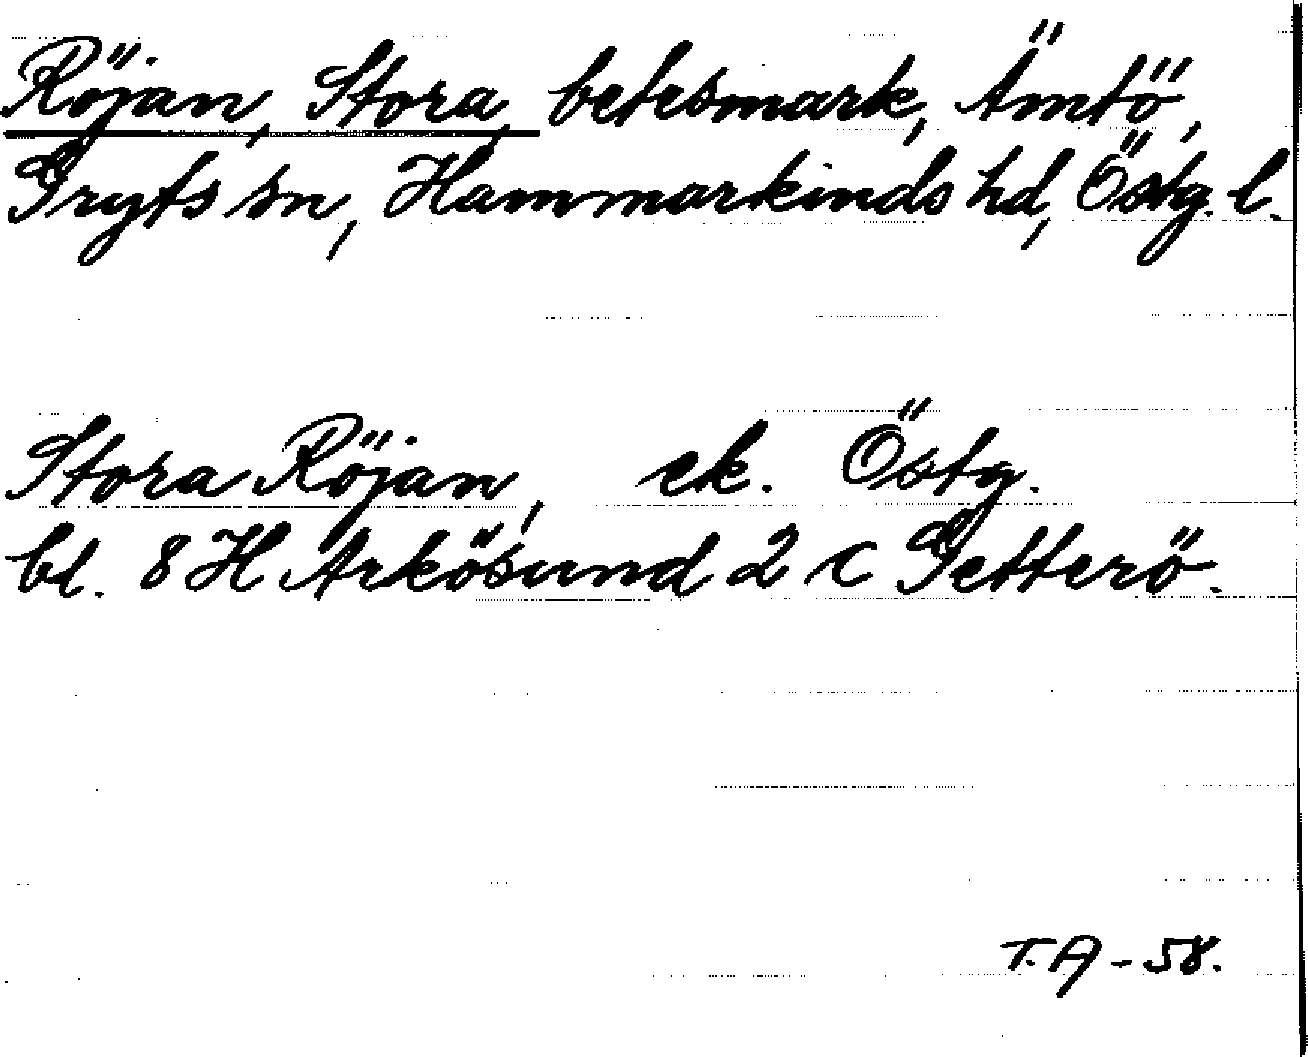 Röjan, Stora, betesmark, Ämtö,
Gryts sn, Hammarkinds hd, Östg. l.
Stora Röjan, ek. Östg.
bl. 8 H Arkösund 2 c Getterö.
T.A - 58.